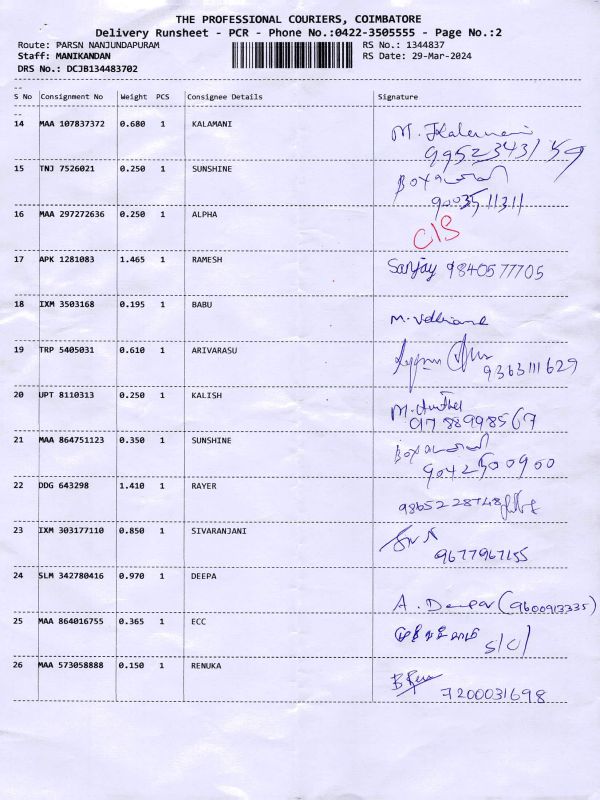 THE PROFESSIONAL COURIERS, COIMBATORE
Delivery Runsheet - PCR - Phone No.:0422-3505555 - Page No.:2
Route: PARSN NANJUNDAPURAM RS No.: 1344837
Staff: MANIKANDAN RS Date: 29-Mar-2024
DRS No.: DCJB134483702
S No Consignment No Weight PCS Consignee Details Signature
14 MAA 107837372 0.680 1 KALAMANI M. Kalamani
9952343159
15 TNJ 7526021 0.250 1 SUNSHINE
9003511311
16 MAA 297272636 0.250 1 ALPHA C/S
17 APK 1281083 1.465 1 RAMESH Sanjay 9840577705
18 IXM 3503168 0.195 1 BABU M.
19 TRP 5405031 0.610 1 ARIVARASU
9363111629
20 UPT 8110313 0.250 1 KALISH M.
9788998567
21 MAA 864751123 0.350 1 SUNSHINE
9042500900
22 DDG 643298 1.410 1 RAYER 9865228748
23 IXM 303177110 0.850 1 SIVARANJANI
9677967155
24 SLM 342780416 0.970 1 DEEPA A. Deepa (9600913335)
25 MAA 864016755 0.365 1 ECC S/C/
26 MAA 573058888 0.150 1 RENUKA
7200031698